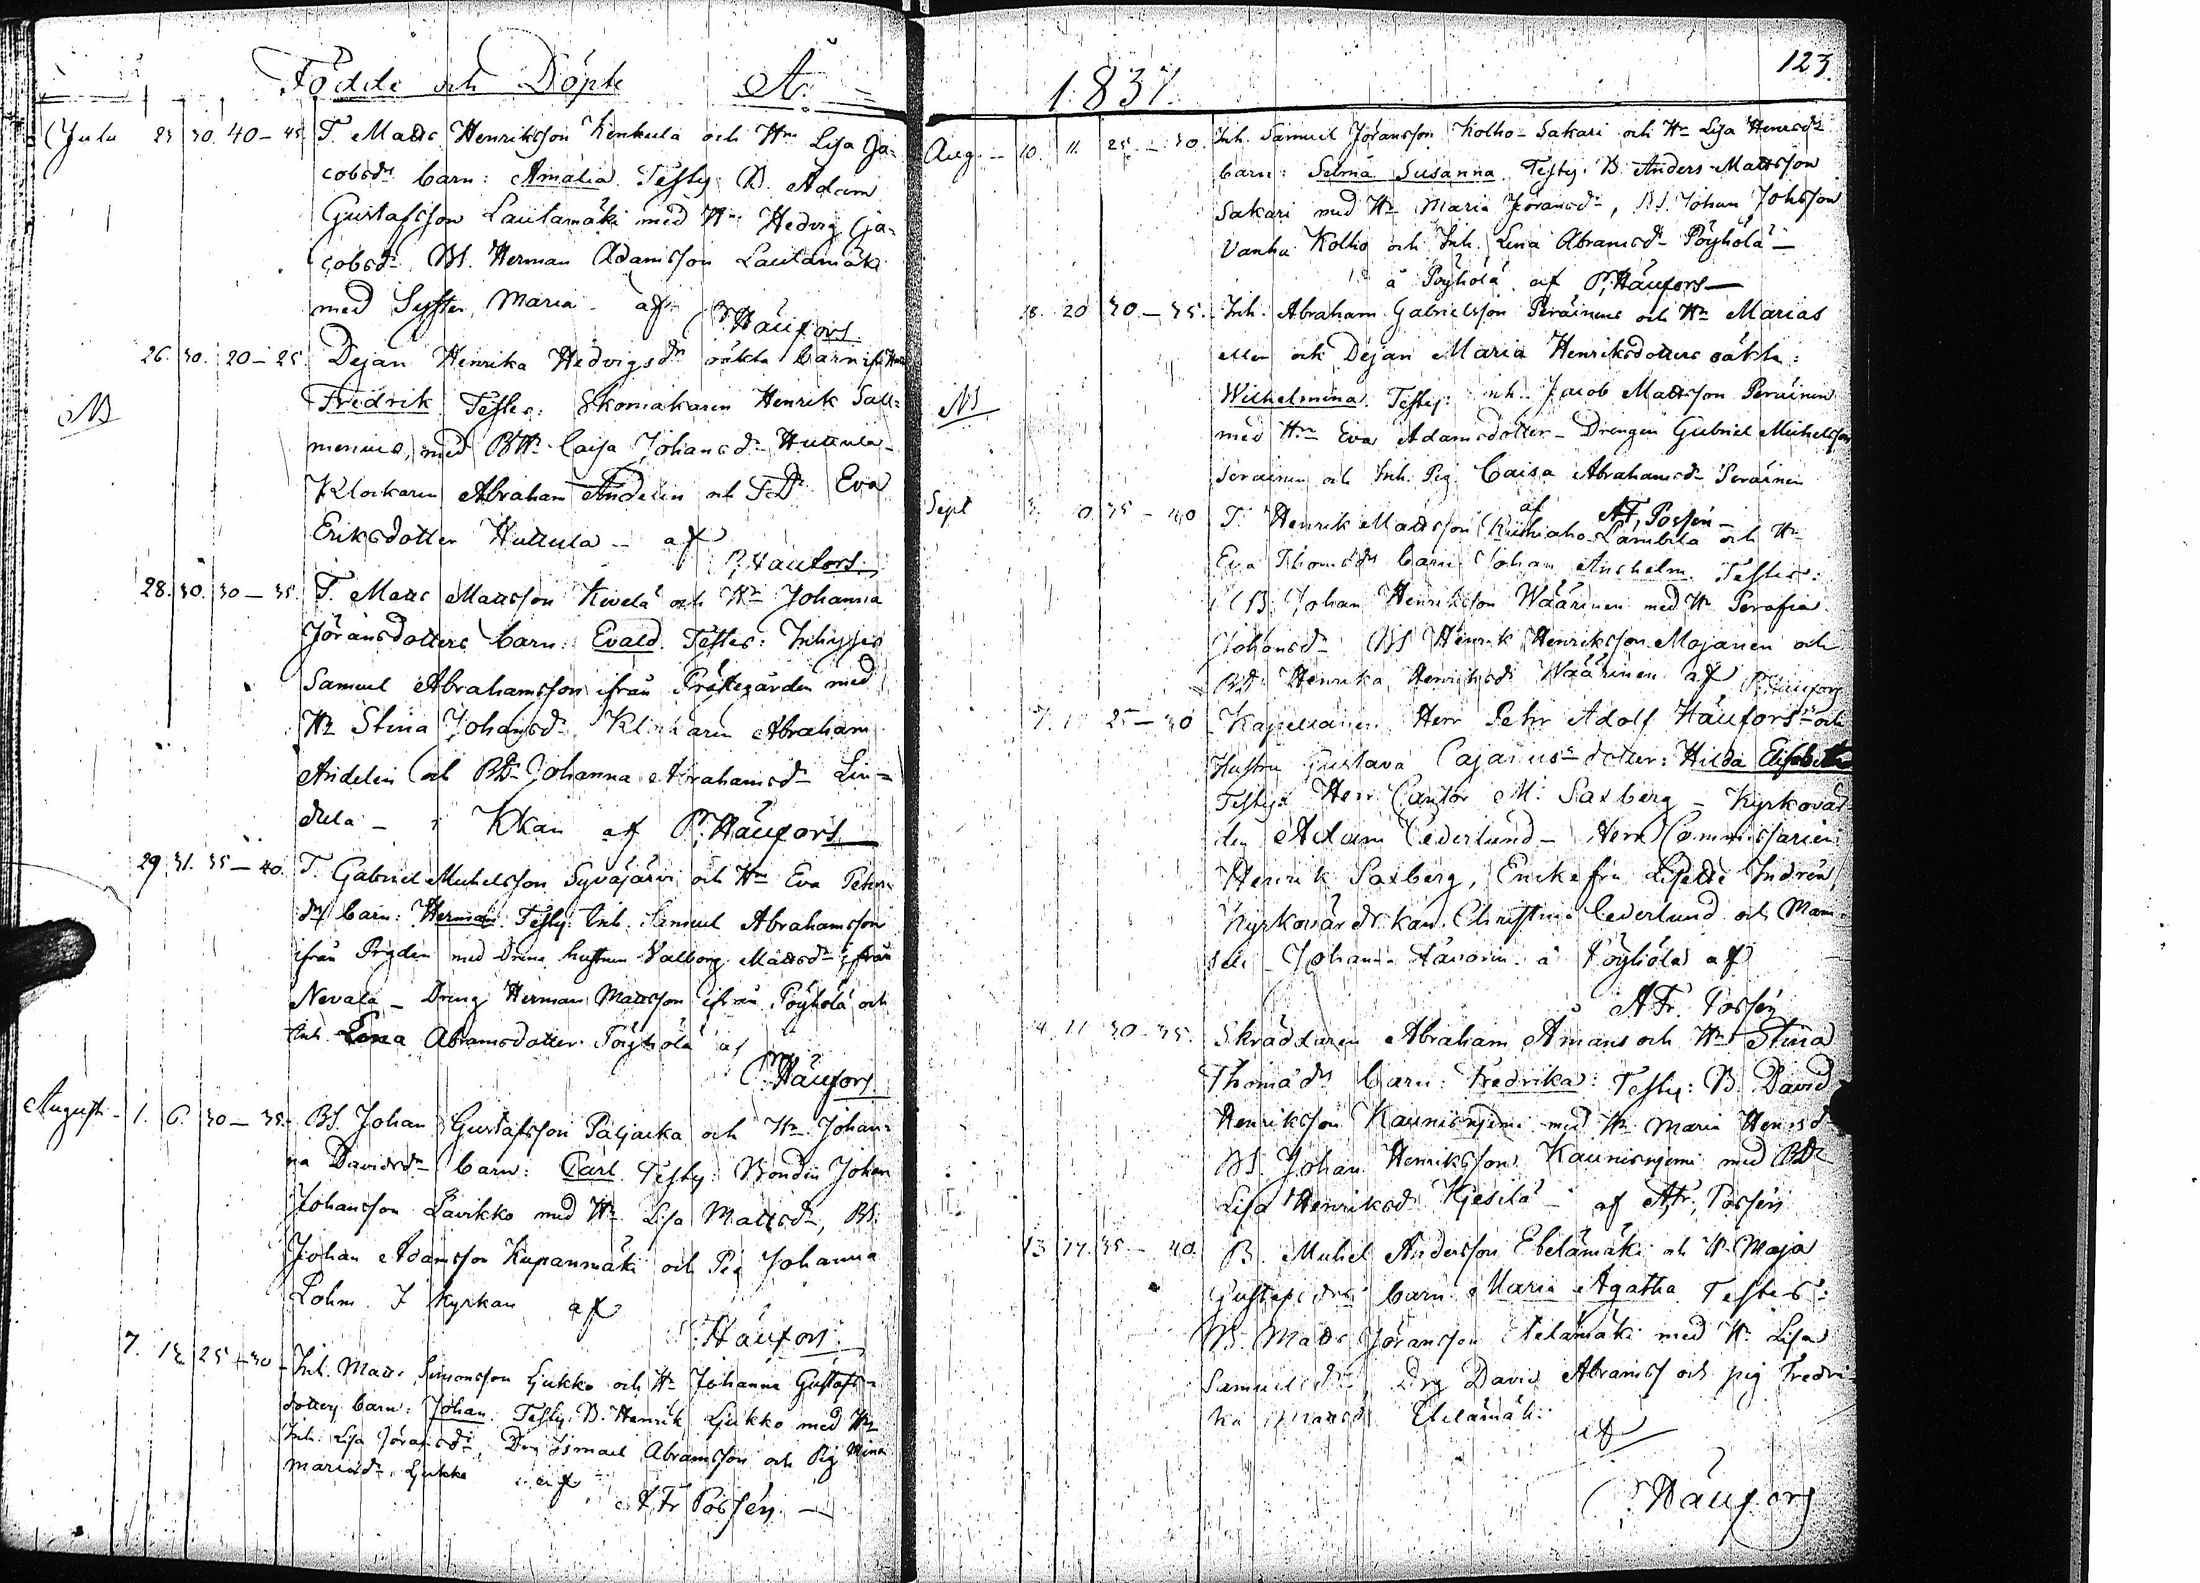 Födde och Döpte A:o
Juli 23 30. 40-45. T. Matts Henriksson Kenkula och H:n Lisa Ja=
cobsdr barn: Amalia. Testes: B. Adam
Gustafsson Lautamäki med H:n Hedvig Ja=
cobsdr. BS. Herman Adamsson Lautamäki
med Syster Maria af P. Häufors
26. 30. 20-25. Dejan Henrika Hedvigsdr oäkta barn
NB Fredrik Testes: Skomakaren Henrik Sall=
menius, med BH:n Caisa Johansdr Huttula
Klockaren Abraham Andelin och T.Dr. Eva
Eriksdotter Huttula - af
P. Häufors
28. 30. 30-35. T. Matts Mattsson Kivelä och H:n Johanna
Jöransdotters barn: Evald. Testes: Inhyses
Samuel Abrahamsson ifrån Prästegården med
H:n Stina Johansdr Klockaren Abraham
Andelin och BDr Johanna Abrahamsdr Lin=
dula - i Kkan af P. Häufors
29. 31. 35-40. T. Gabriel Michelsson Syväjärvi och H:n Eva Pehrs=
dr barn: Herman. Testes: Inh. Samuel Abrahamsson
ifrån Prgden med hustrun Valborg Mattsdr ifrån
Nevala - Dreng Herman Mattsson ifrån Pöyhölä och
Inh. Lena Abramsdotter Pöyhölä af
P. Häufors
August 1. 6. 30-35. BS. Johan Gustafsson Paljacka och H:n Johan=
na Davidsdr barn: Carl. Testes: Bonden Johan
Johansson Lavikko med H:n Lisa Mattsdr, BS:
Johan Adamsson Kupanmäki och Pig Johanna
Lohm. I kyrkan af
P. Häufors
7. 12. 25-30 Inh. Matts Simonsson Ljukko och H:n Johanna Gustafs=
dotters barn: Johan. Testes: B. Henrik Ljukko med H:n
Inh. Lisa Jöransdr, Drg Ismael Abramsson och Pig Mina
Mariasdr Ljukko af
A. Fr. Possén
1837.
123.
Aug. 10. 11. 25-30. Inh. Samuel Jöransson Kolho-Sakari och H:n Lisa Henrsdr
barn: Selma Susanna. Testes: B. Anders Mattsson
Sakari med H:n Maria Jöransdr, BS. Johan Johsson
Vanha Kolho och Inh. Lena Abramsdr Pöyhölä
å Pöyhölä af P. Häufors
18. 20 30-35. Inh. Abraham Gabrielsson Peräinens och H:n Marias
eller ock Dejan Maria Henriksdotters oäkta:
NB Wilhelmina. Testes: inh. Jacob Mattsson Peräinen
med H:n Eva Adamsdotter - Drengen Gabriel Michelsson
Peräinen och Inh. Pig. Caisa Abrahamsdr Peräinen
af A F. Possén
Sept 3. 10. 35-40 T. Henrik Mattsson Lambila och H:n
Eva Thomsdr barn Johan Anshelm. Testes:
B. Johan Henriksson Wäärinen med H:n Serafia
Johansdr BS Henrik Henriksson Mojanen och
BD. Henrika Henriksdr Wäärinen af P. Häufors
7. 11 25-30 Kapellanen Herr Pehr Adolf Häufors och
Hustru Gustava Cajanus dotter: Hilda Elisabeth
Testes: Herr Cantor M: Saxberg - Kyrkovär=
den Adam Cederlund - Herr Commissarien
Henrik Saxberg, Enkefru Lisette Indrén,
Kyrkovärdskan Christina Cederlund och Mam=
sell Johanna å Pöyhölä af
A Fr. Possén
4. 11 30-35. Skräddaren Abraham Åmans och H:n Stina
Thomædr barn: Fredrika: Testes: B. David
Henriksson Kaunisnjemi med H:n Maria Henrsdr
BS. Johan Henriksson Kaunisnjemi med BDr
Lisa Henriksdr Kjesilä - af A. Fr. Possén
13 17. 35-40. B. Michel Andersson Etelämäki och H:n Maja
Gustafsdrs barn Maria Agatha Testes:
B. Matts Jöransson Etelämäki med H:n Lisa
Samuelsdr, Drg David Abramss och pig Fredri=
ka Mattsdr Etelämäki
af
P. Häufors